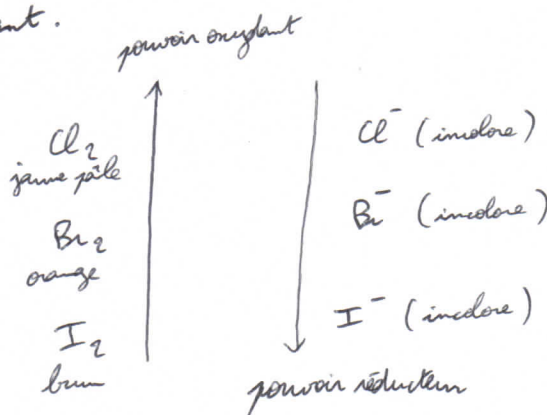 ant.
pouvoir oxydant
Cl₂
jaune pâle
Br₂
orange
I₂
brun
Cl⁻ (incolore)
Br⁻ (incolore)
I⁻ (incolore)
pouvoir réducteur